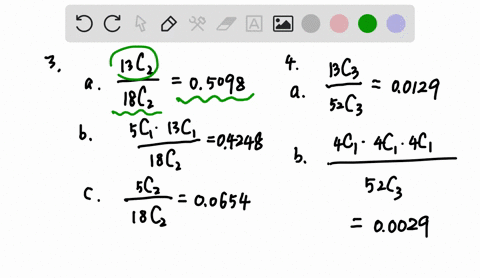 3.
a. 13C2 / 18C2 = 0.5098
b. 5C1 · 13C1 / 18C2 = 0.4248
c. 5C2 / 18C2 = 0.0654
4.
a. 13C3 / 52C3 = 0.0129
b. 4C1 · 4C1 · 4C1 / 52C3
= 0.0029